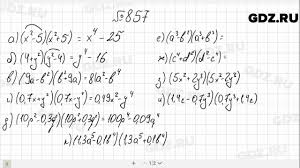 GDZ.RU
№857
а) (x²-5)(x²+5) = x⁴-25
б) (4+y²)(y²-4) = y⁴-16
в) (9a-b²)(b²+9a) = 81a²-b⁴
г) (0,7x+y²)(0,7x-y²) = 0,49x²-y⁴
д) (10p²-0,3q²)(10p²+0,3q²) = 100p⁴-0,09q⁴
е) (a³-b²)(a³+b²) =
ж) (c⁴+d²)(d²-c⁴) =
з) (5x²+2y³)(5x²-2y³)
и) (1,4c-0,7y³)(0,7y³+1,4c)
к) (1,3a⁵-0,1b⁴)(1,3a⁵+0,1b⁴)
GDZ.RU